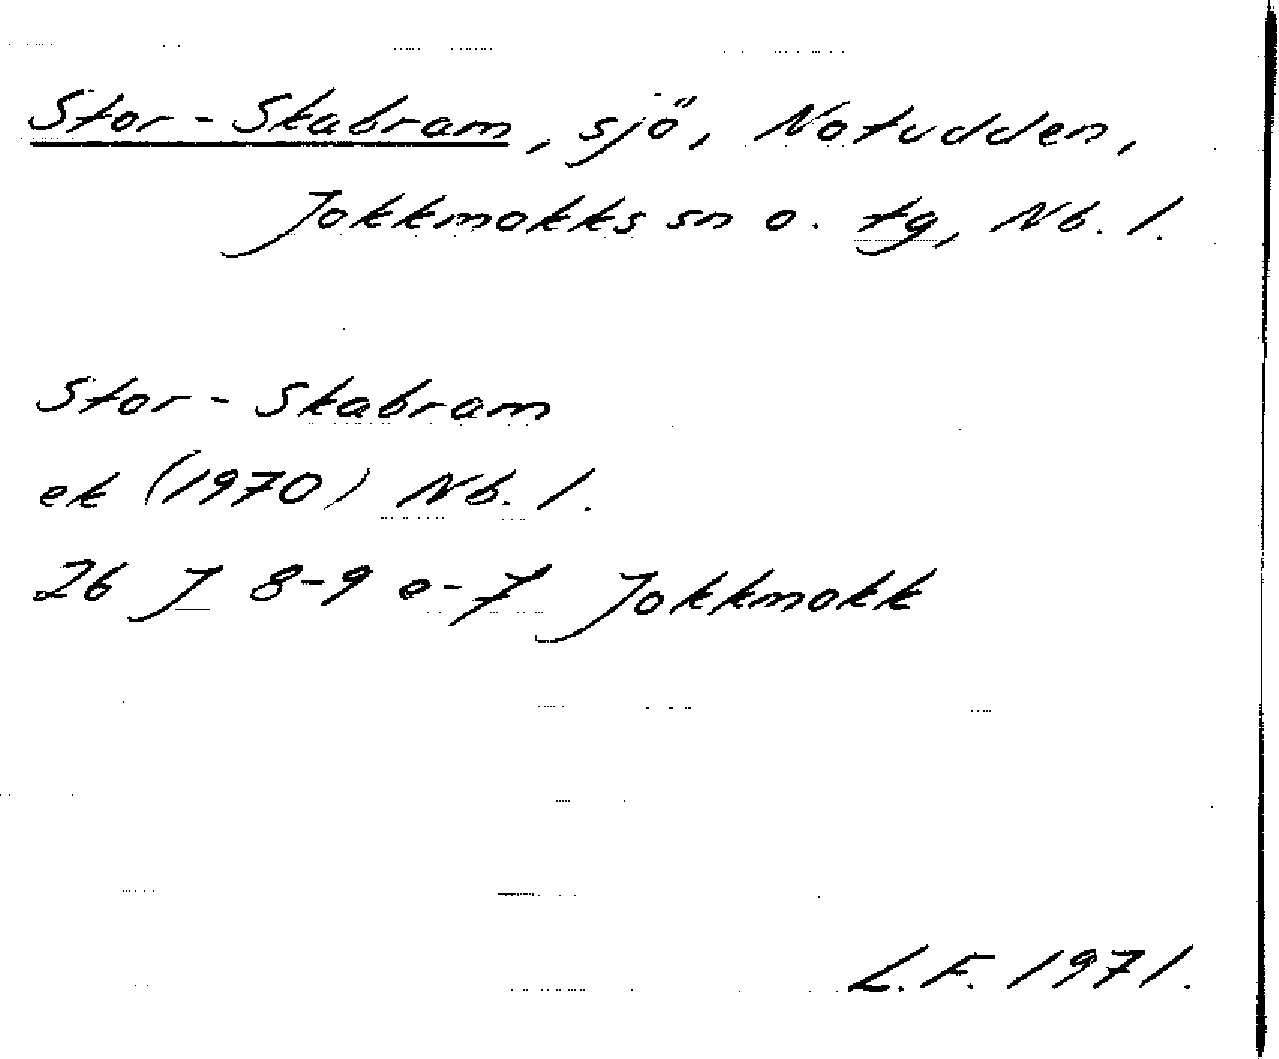 Stor-Skabram, sjö, Notudden,
Jokkmokks sn o. tg, Nb. l.
Stor-Skabram
ek (1970) Nb. l.
26 J 8-9 e-f Jokkmokk
L.F. 1971.